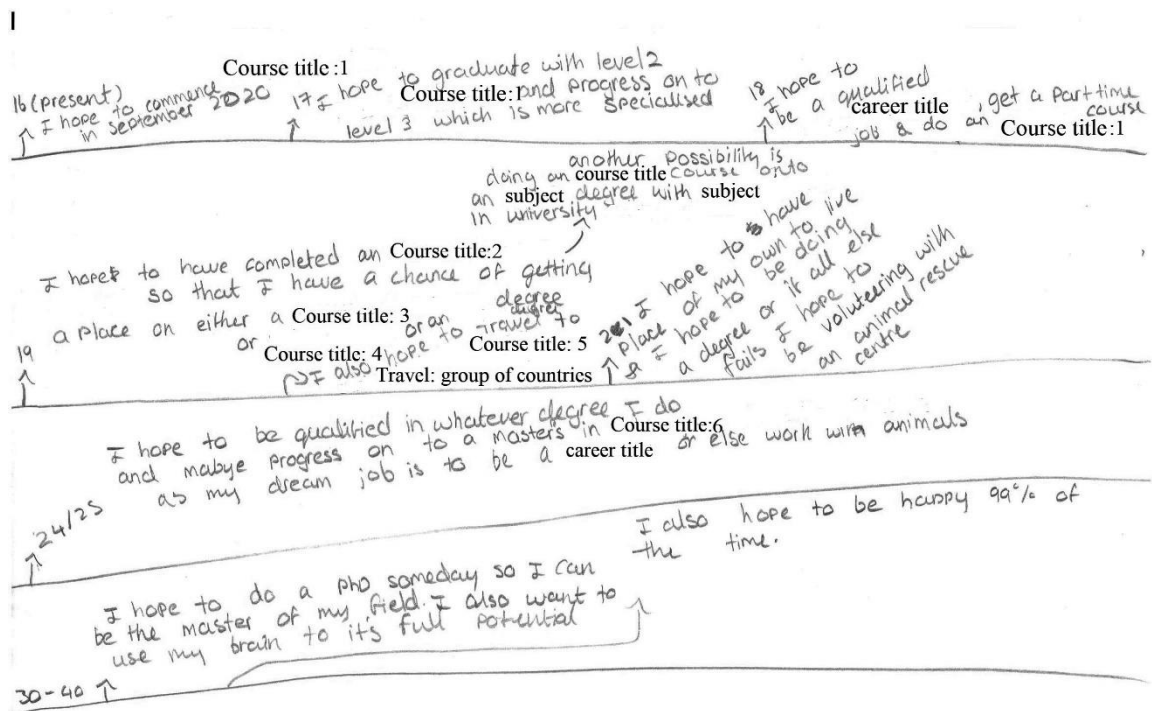 16 (present)
I hope to commence Course title :1
in September 2020
17 I hope to graduate with level 2
Course title:1 and progress on to
level 3 which is more specialised
18 I hope to
be a qualified
career title , get a part time
job & do an Course title:1 course
another possibility is
doing an course title course onto
an subject degree with subject
in university
I hope to have completed an Course title:2
so that I have a chance of getting
a place on either a Course title: 3
or Course title: 4 or an degree
Course title: 5
19
I also hope to travel to
Travel: group of countries
21 I hope to have
place of my own to live
& I hope to be doing
a degree or if all else
fails I hope to
be voluteering with
an animal rescue
centre
I hope to be qualified in whatever degree I do
and mabye progress on to a masters in Course title:6
as my dream job is to be a career title or else work with animals
24/25
I also hope to be happy 99% of
the time.
I hope to do a PhD someday so I can
be the master of my field. I also want to
use my brain to it's full potential
30-40